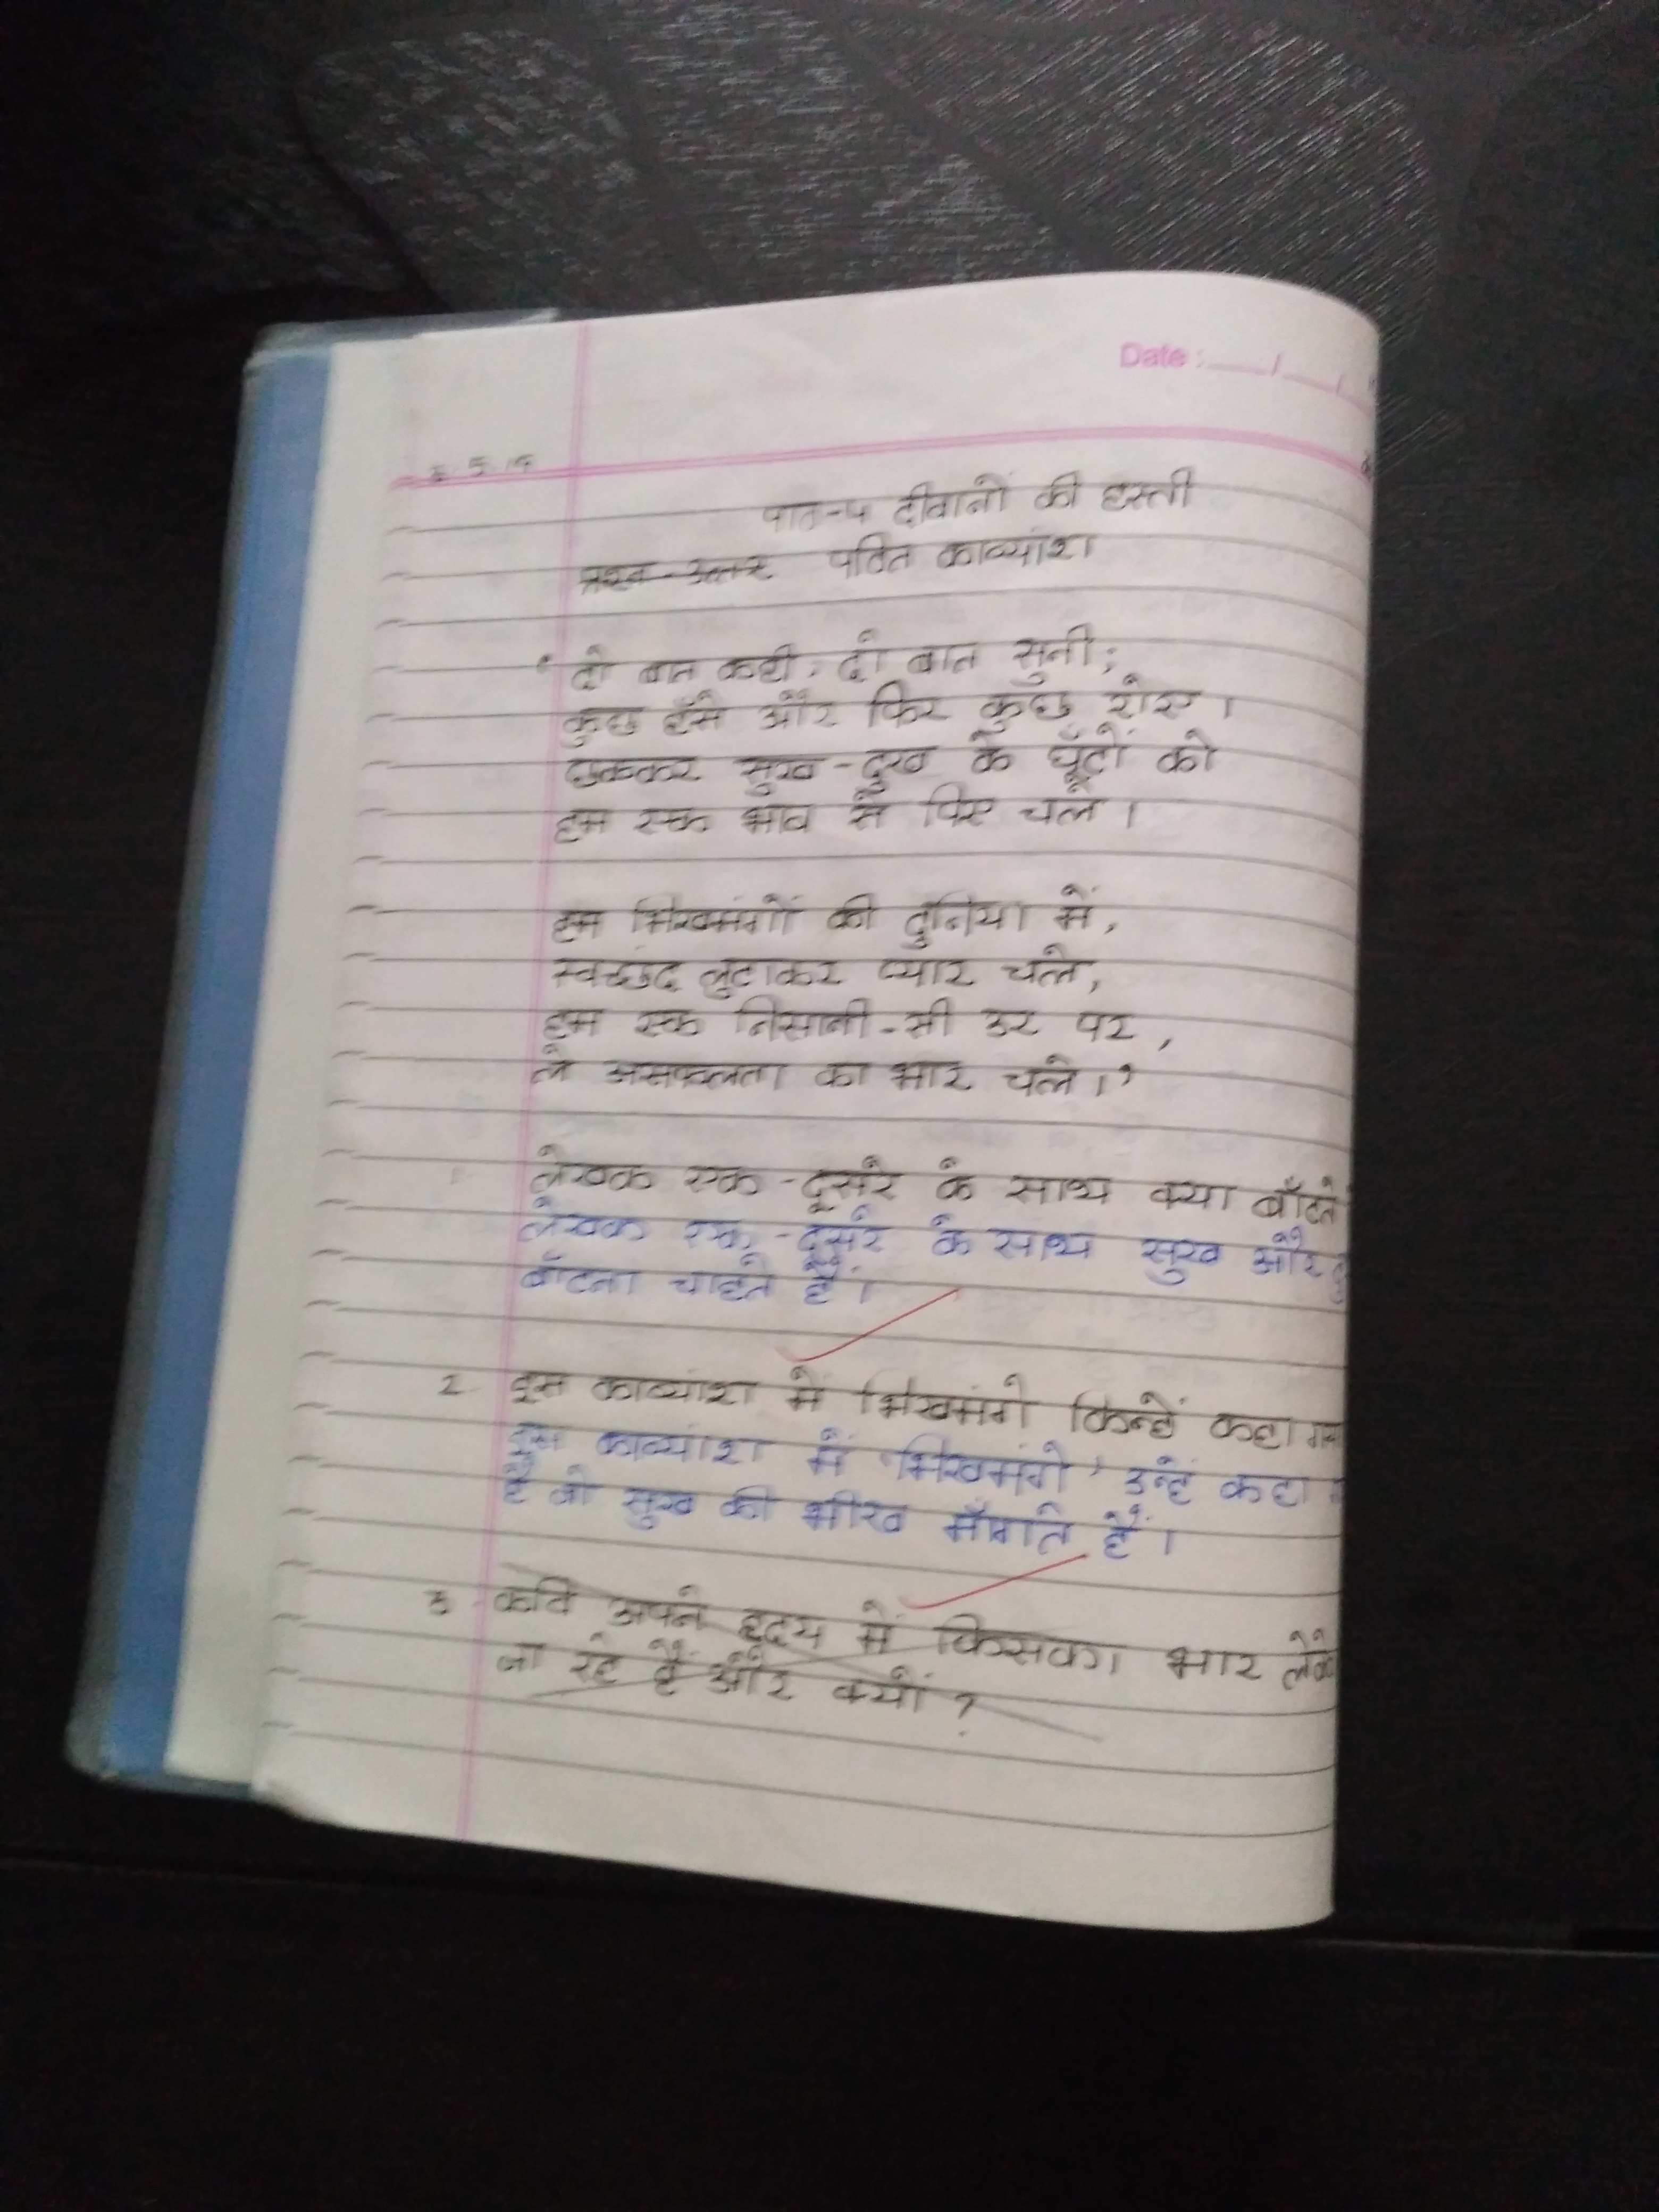 Date : / /
5.19
पाठ-५ दीवानों की हस्ती
प्रश्न-उत्तर पठित काव्यांश
' दो बात कही, दो बात सुनी;
कुछ हँसे और फिर कुछ रोए ।
छककर सुख-दुख के घूँटों को
हम एक भाव से पिए चले ।
हम भिखमंगों की दुनिया में,
स्वच्छंद लुटाकर प्यार चले,
हम एक निसानी-सी उर पर,
ले असफलता का भार चले ।'
लेखक एक-दूसरे के साथ क्या बाँटते
लेखक एक-दूसरे के साथ सुख और
बाँटना चाहते हैं ।
2 इस काव्यांश में भिखमंगे किन्हें कहा
इस काव्यांश में 'भिखमंगे' उन्हें कहा
है जो सुख की भीख माँगते हैं ।
3 कवि अपने हृदय में किसका भार
जा रहे हैं और क्यों ?